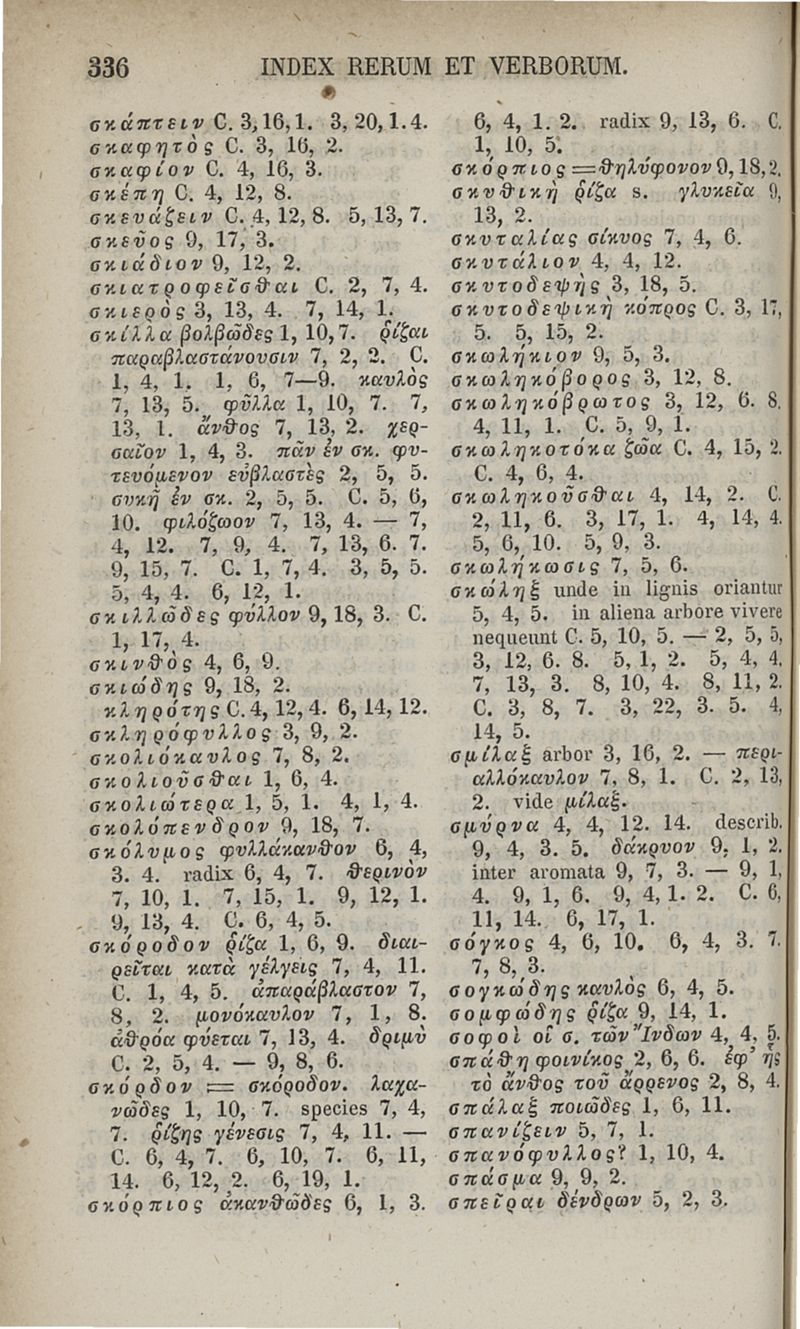 336 INDEX RERUM ET VERBORUM.
σκάπτειν C. 3, 16, 1. 3, 20, 1. 4.
σκαφητὸς C. 3, 16, 2.
σκαφίον C. 4, 16, 3.
σκέπη C. 4, 12, 8.
σκευάζειν C. 4, 12, 8. 5, 13, 7.
σκεῦος 9, 17, 3.
σκιάδιον 9, 12, 2.
σκιατροφεῖσθαι C. 2, 7, 4.
σκιερὸς 3, 13, 4. 7, 14, 1.
σκίλλα βολβῶδες 1, 10, 7. ῥίζαι
παραβλαστάνουσιν 7, 2, 2. C.
1, 4, 1. 1, 6, 7—9. καυλὸς
7, 13, 5. φῦλλα 1, 10, 7. 7,
13, 1. ἄνθος 7, 13, 2. χερ-
σαῖον 1, 4, 3. πᾶν ἐν σκ. φυ-
τευόμενον εὐβλαστὲς 2, 5, 5.
συκῆ ἐν σκ. 2, 5, 5. C. 5, 6,
10. φιλόζωον 7, 13, 4. — 7,
4, 12. 7, 9, 4. 7, 13, 6. 7.
9, 15, 7. C. 1, 7, 4. 3, 5, 5.
5, 4, 4. 6, 12, 1.
σκιλλῶδες φύλλον 9, 18, 3. C.
1, 17, 4.
σκινθὸς 4, 6, 9.
σκιώδης 9, 18, 2.
κληρότης C. 4, 12, 4. 6, 14, 12.
σκληρόφυλλος 3, 9, 2.
σκολιόκαυλος 7, 8, 2.
σκολιοῦσθαι 1, 6, 4.
σκολιώτερα 1, 5, 1. 4, 1, 4.
σκολόπενδρον 9, 18, 7.
σκόλυμος φυλλάκανθον 6, 4,
3. 4. radix 6, 4, 7. θερινὸν
7, 10, 1. 7, 15, 1. 9, 12, 1.
9, 13, 4. C. 6, 4, 5.
σκόροδον ῥίζα 1, 6, 9. διαι-
ρεῖται κατὰ γέλγεις 7, 4, 11.
C. 1, 4, 5. ἀπαράβλαστον 7,
8, 2. μονόκαυλον 7, 1, 8.
ἀθρόα φύεται 7, 13, 4. δριμὺ
C. 2, 5, 4. — 9, 8, 6.
σκόρδον = σκόροδον. λαχα-
νῶδες 1, 10, 7. species 7, 4,
7. ῥίζης γένεσις 7, 4, 11. —
C. 6, 4, 7. 6, 10, 7. 6, 11,
14. 6, 12, 2. 6, 19, 1.
σκόρπιος ἀκανθῶδες 6, 1, 3.
6, 4, 1. 2. radix 9, 13, 6. C.
1, 10, 5.
σκόρπιος = θηλύφονον 9, 18, 2.
σκυθικὴ ῥίζα s. γλυκεῖα 9,
13, 2.
σκυταλίας σίκυος 7, 4, 6.
σκυτάλιον 4, 4, 12.
σκυτοδεψὴς 3, 18, 5.
σκυτοδεψικὴ κόπρος C. 3, 17,
5. 5, 15, 2.
σκωλήκιον 9, 5, 3.
σκωληκόβορος 3, 12, 8.
σκωληκόβρωτος 3, 12, 6. 8.
4, 11, 1. C. 5, 9, 1.
σκωληκοτόκα ζῶα C. 4, 15, 2.
C. 4, 6, 4.
σκωληκοῦσθαι 4, 14, 2. C.
2, 11, 6. 3, 17, 1. 4, 14, 4.
5, 6, 10. 5, 9, 3.
σκωλήκωσις 7, 5, 6.
σκώληξ unde in lignis oriantur
5, 4, 5. in aliena arbore vivere
nequeunt C. 5, 10, 5. — 2, 5, 5,
3, 12, 6. 8. 5, 1, 2. 5, 4, 4.
7, 13, 3. 8, 10, 4. 8, 11, 2.
C. 3, 8, 7. 3, 22, 3. 5. 4,
14, 5.
σμίλαξ arbor 3, 16, 2. — περι-
αλλόκαυλον 7, 8, 1. C. 2, 13,
2. vide μίλαξ.
σμύρνα 4, 4, 12. 14. describ.
9, 4, 3. 5. δάκρυον 9, 1, 2.
inter aromata 9, 7, 3. — 9, 1,
4. 9, 1, 6. 9, 4, 1. 2. C. 6,
11, 14. 6, 17, 1.
σόγκος 4, 6, 10. 6, 4, 3. 7.
7, 8, 3.
σογκώδης καυλὸς 6, 4, 5.
σομφώδης ῥίζα 9, 14, 1.
σοφοὶ οἱ σ. τῶν Ἰνδων 4, 4, 5.
σπάθη φοινίκος 2, 6, 6. ἐφ’ ἧς
τὸ ἄνθος τοῦ ἄρρενος 2, 8, 4.
σπάλαξ ποιῶδες 1, 6, 11.
σπανίζειν 5, 7, 1.
σπανόφυλλος? 1, 10, 4.
σπάσμα 9, 9, 2.
σπεῖραι δένδρων 5, 2, 3.